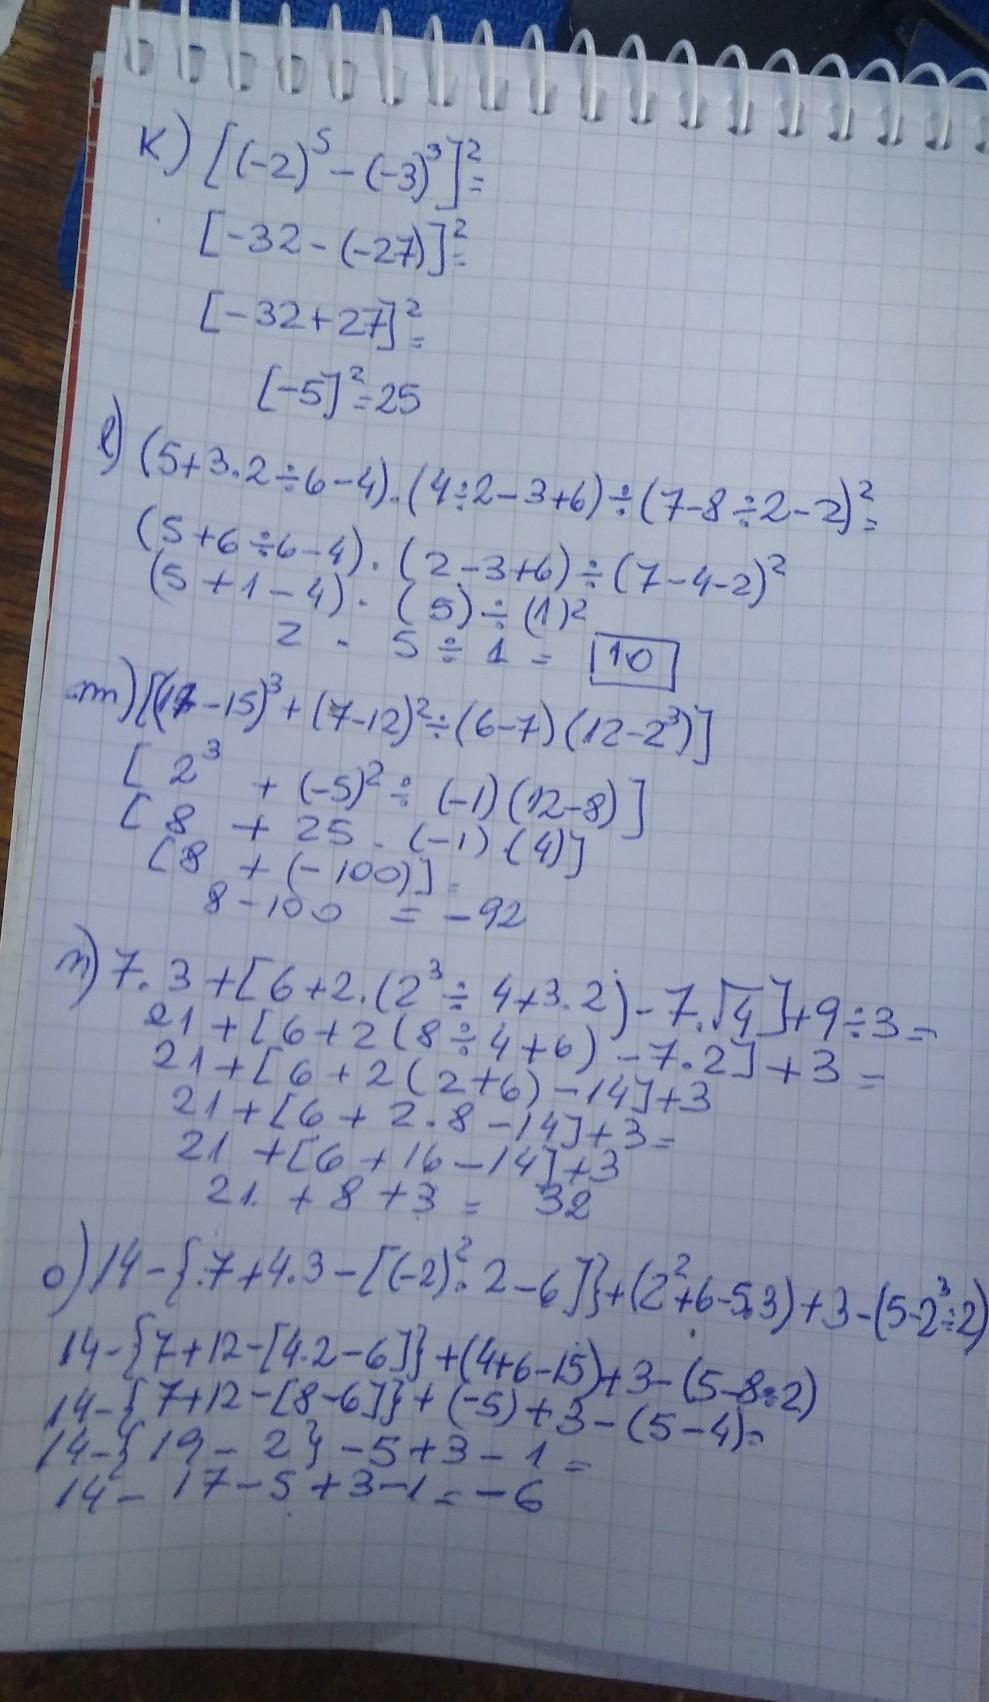 K) [(-2)^5 - (-3)^3]^2=
[-32 - (-27)]^2=
[-32+27]^2=
[-5]^2=25
l) (5+3·2÷6-4)·(4÷2-3+6)÷(7-8÷2-2)^2=
(5+6÷6-4)·(2-3+6)÷(7-4-2)^2
(5+1-4)·(5)÷(1)^2
2 · 5 ÷ 1 = 10
m) [(17-15)^3+(7-12)^2÷(6-7)(12-2^3)]
[2^3 + (-5)^2÷ (-1)(12-8)]
[8 + 25 · (-1)·(4)]
[8 + (-100)]=
8-100 = -92
n) 7·3+[6+2·(2^3÷4+3·2)-7·√4]+9÷3=
21+[6+2(8÷4+6)-7·2]+3=
21+[6+2(2+6)-14]+3
21+[6+2·8-14]+3=
21+[6+16-14]+3
21+8+3= 32
o) 14-{7+4·3-[(-2)^2·2-6]}+(2^2+6-5·3)+3-(5-2^3÷2)
14-{7+12-[4·2-6]}+(4+6-15)+3-(5-8÷2)
14-{7+12-[8-6]}+(-5)+3-(5-4)=
14-{19-2}-5+3-1=
14-17-5+3-1=-6